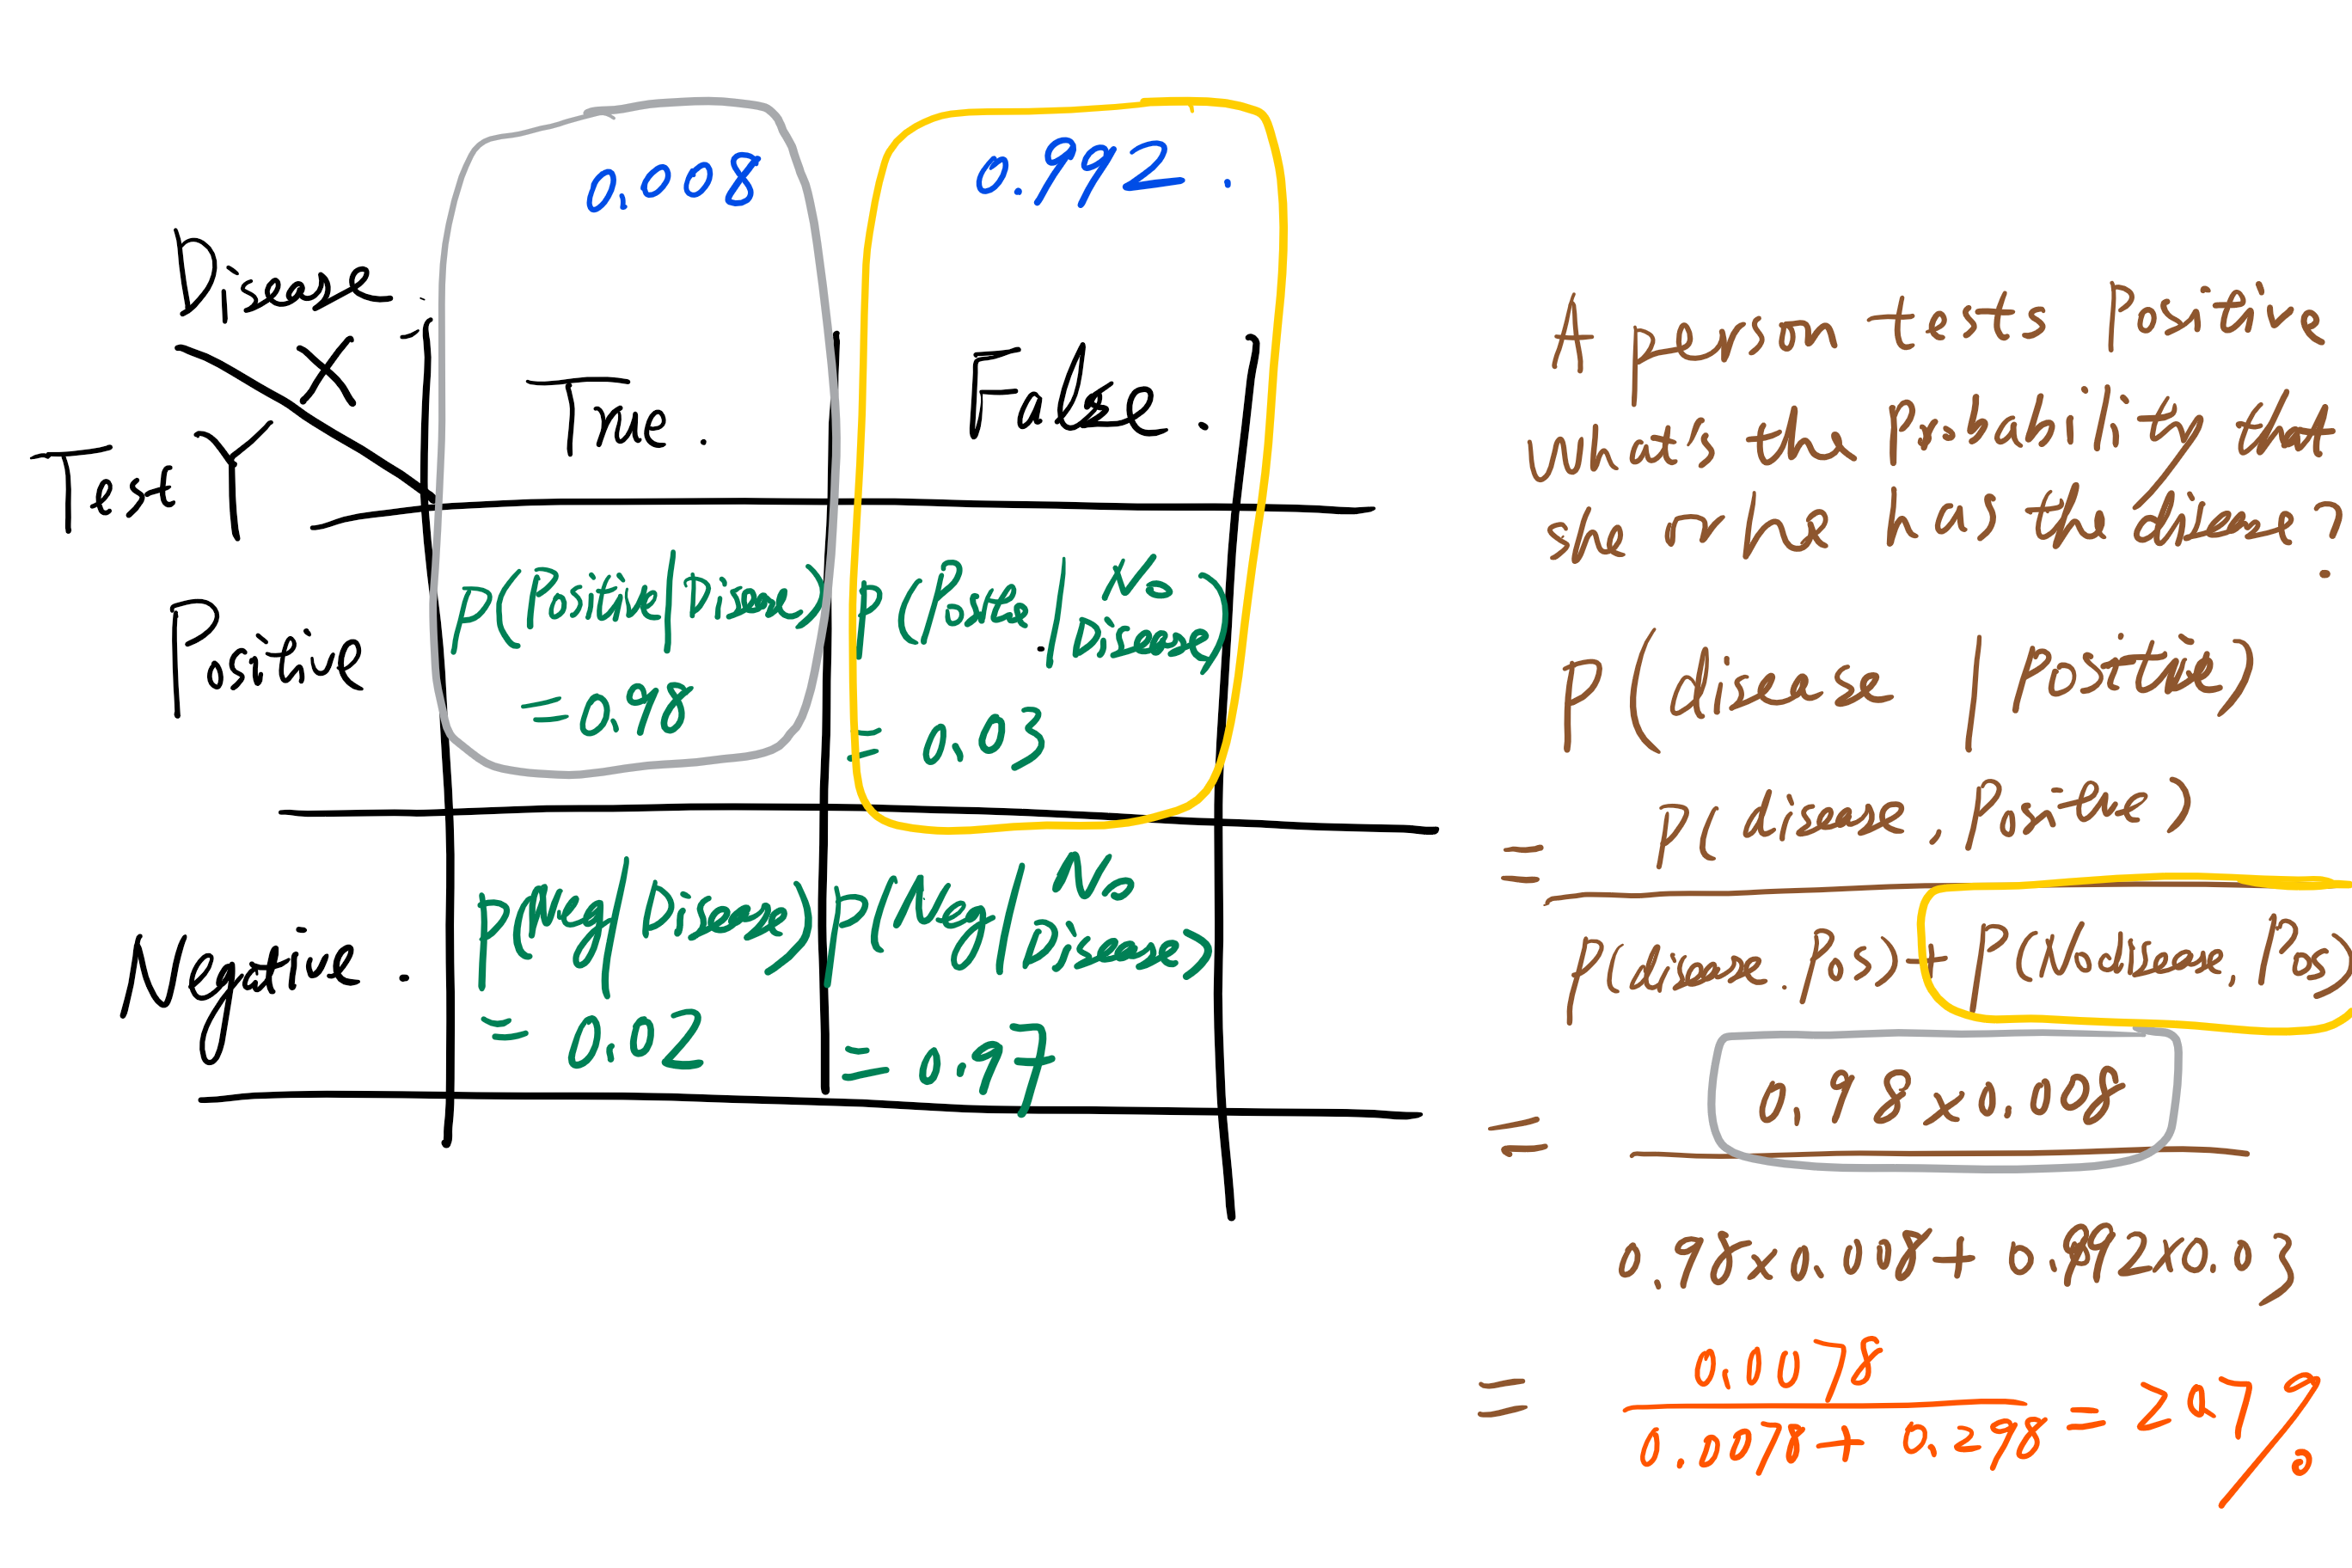 0.008
0.992.
Disease
X
Test Y
True.
False.
Positive
P(Positive|Disease)
=0.98
P(Positive|No Disease)
= 0.03
Negative.
P(Neg|Disease)
= 0.02
P(Neg|No Disease)
= 0.97
A person tests Positive
what is the Probability that
she or he has the disease?
P(disease | Positive)
= P(disease, Positive)
P(disease, Pos)+P(No disease, Pos)
= 0.98x0.008
0.98x0.008+0.992x0.03
= 0.0078
0.0078+0.298 = 20.7%